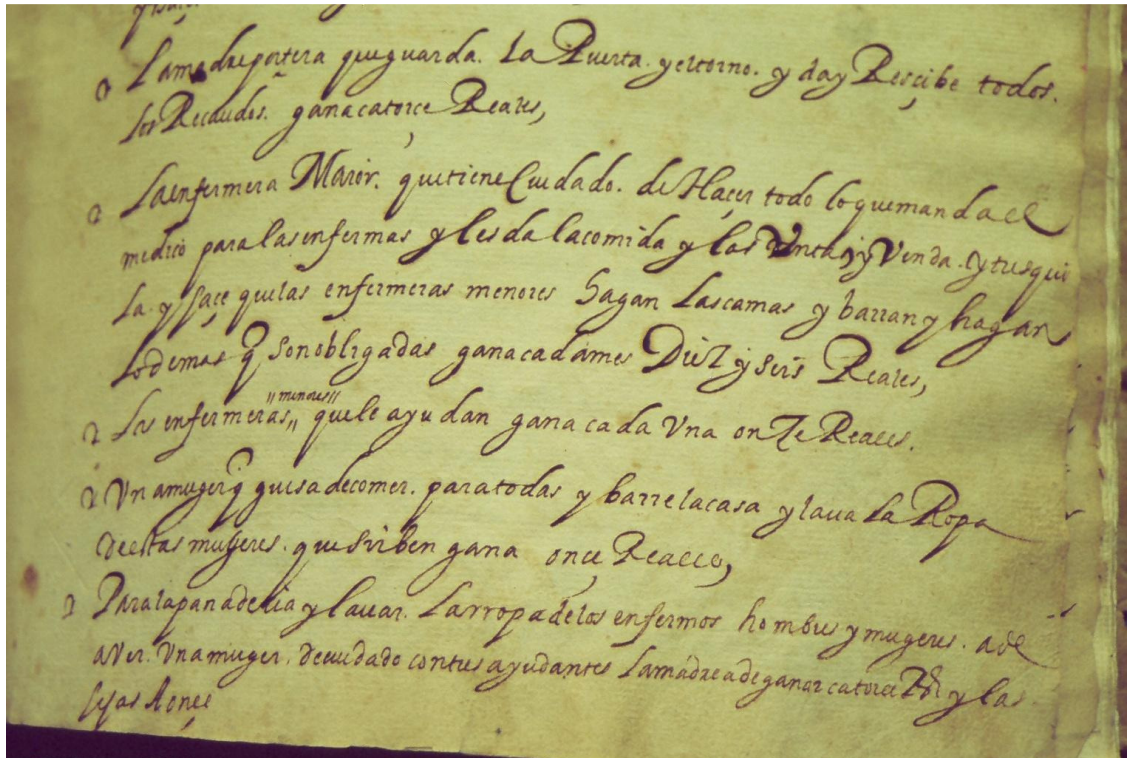 La madre portera que guarda. La Puerta. y el torno. y da y Rescibe todos.
los Recaudos. gana catorce Reales,
La enfermera Maior. que tiene Cuidado. de Haçer todo lo que manda el
medico para las enfermas y les da la comida y las Vnta y Venda. y tusqui
la. y haçe que las enfermeras menores hagan Las camas y barran y hagan
lo demas q̃ son obligadas gana cada mes Diez y seis Reales,
Las enfermeras "menores" que le ayudan gana cada Vna onze Reales.
Vna muger q̃ guisa de comer. para todas y barre la casa y laua La Ropa
de estas mugeres. que sirben gana onçe Reales,
Para la panaderia y lauar. La rropa de los enfermos hombres y mugeres. a de
aVer. Vna muger. de cuidado con tres ayudantes La madre a de ganar catorce Rs y las
a onçe